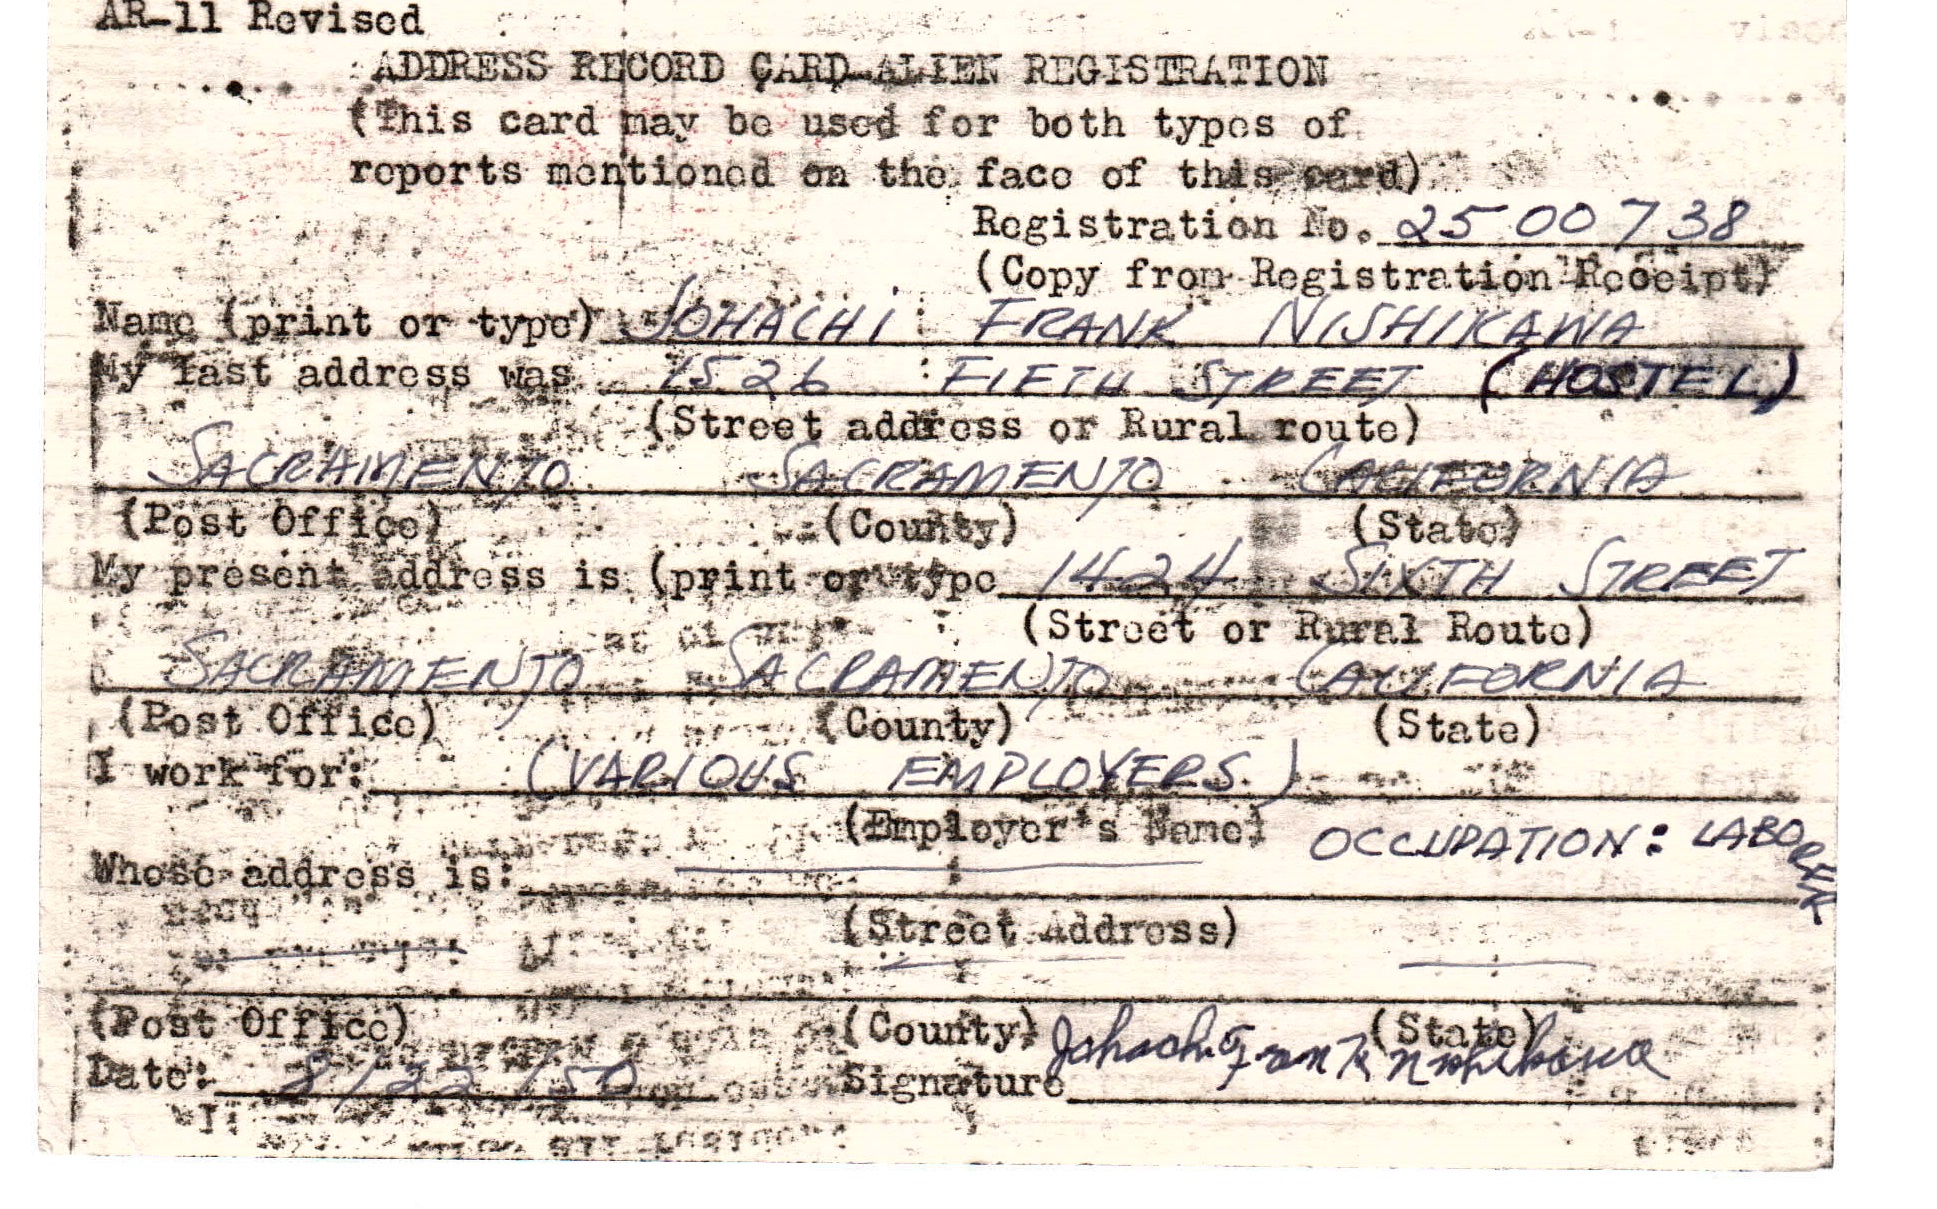 AR-11 Revised
ADDRESS RECORD CARD-ALIEN REGISTRATION
(This card may be used for both types of
reports mentioned on the face of this card)
Registration No. 2500738
(Copy from Registration Receipt)
Name (print or type) JOHACHI FRANK NISHIKAWA
My last address was 1526 FIFTH STREET (HOSTEL)
(Street address or Rural route)
SACRAMENTO SACRAMENTO CALIFORNIA
(Post Office) (County) (State)
My present address is (print or type 1424 SIXTH STREET
(Street or Rural Route)
SACRAMENTO SACRAMENTO CALIFORNIA
(Post Office) (County) (State)
I work for: (VARIOUS EMPLOYERS)
(Employer's Name) OCCUPATION: LABORER
Whose address is:
(Street Address)
(Post Office) (County) (State)
Date: 8/22/50 Signature Johachi Frank Nishikawa